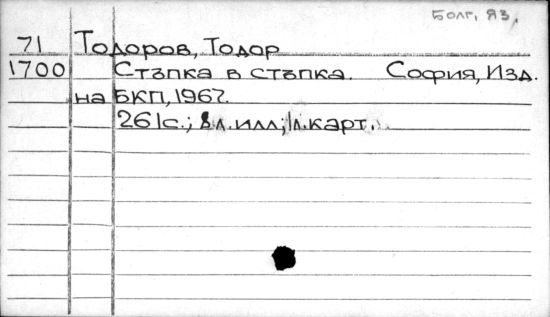 Болг. яз.
71 Тодоров, Тодор
1700 Стъпка в стъпка. София, Изд.
на БКП, 1967.
261с.; 8л.илл; 1л.карт.